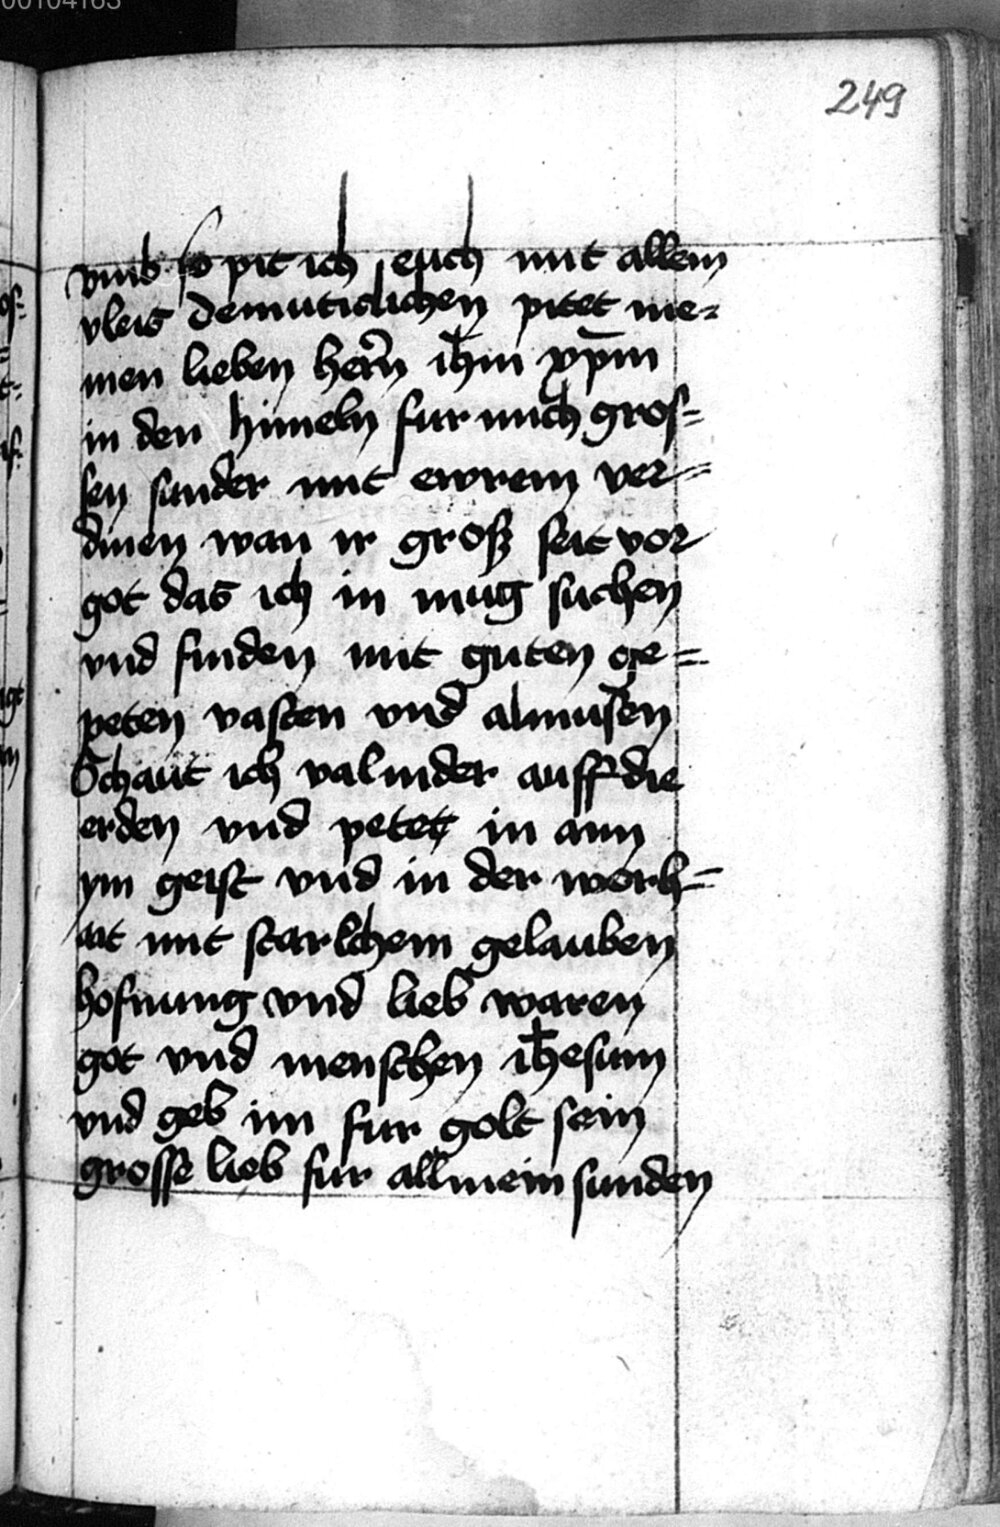 00104163
249
vmb so pit ich euch mit allem
vleis demuticlichen pitet mei=
nen lieben hern̄ ih̄m xp̄m
in den himeln fur mich gros=
sen sunder mit ewrem ver=
dinen wan ir groß seit vor
got das ich in mug suchen
vnd finden mit guten ge=
peten vasten vnd almusen
Schaut ich val nider auff die
erden vnd petet in ann
ym geist vnd in der worh=
ait mit starkhem gelauben
hofnung vnd lieb waren
got vnd menschen ih̄esum
vnd geb im fur golt sein
grosse lieb fur all mein sunden